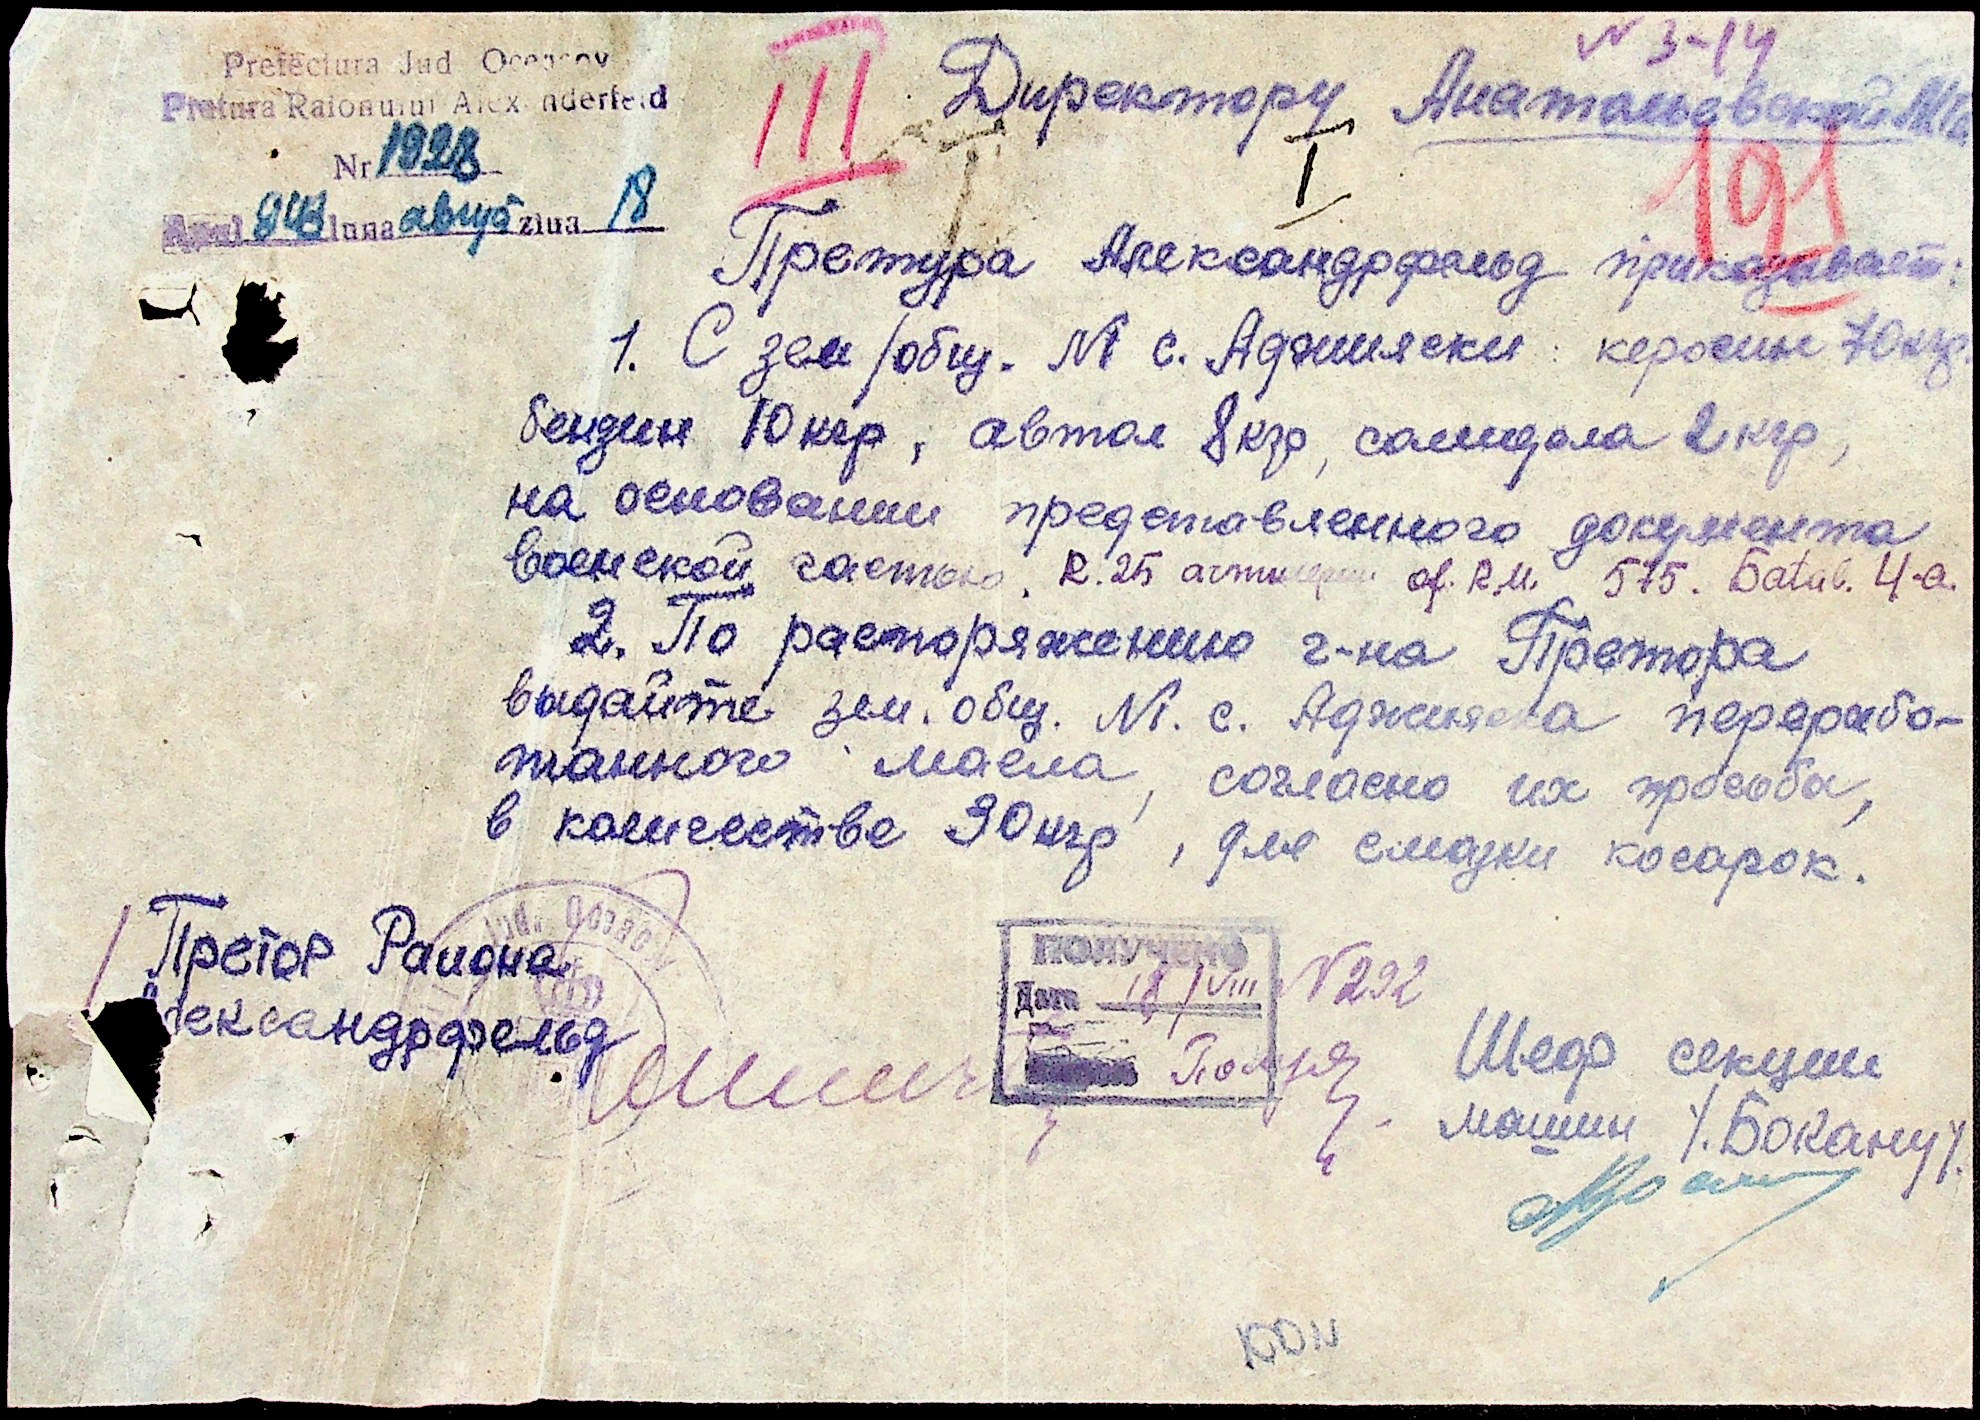 Prefectura Jud Oceacov
Pretura Raionului Alexanderfeld
Nr 1928
Anul 943 luna август ziua 18
III
N 3-14
Директору Анатольевской МТС
I
191
Претура Александрфельд приказывает:
1. С зем/общ. N1 с. Аджияски: керосин 70 кгр.
бензин 10 кгр, автол 8 кгр, солидола 2 кгр,
на основании представленного документа
воинской частью. R. 25 артилерии of. R.M. 575. Batab. 4-а.
2. По распоряжению г-на Претора
выдайте зем. общ. N1. с. Аджияска перерабо-
танного масла, согласно их просьба,
в количестве 30 кгр, для смазки косарок.
Претор Раиона
Александрфельд
Jud. Oceacov
ПОЛУЧЕНО
Дата 18/VIII N 292
Шеф секции
машин /. Бокану/.